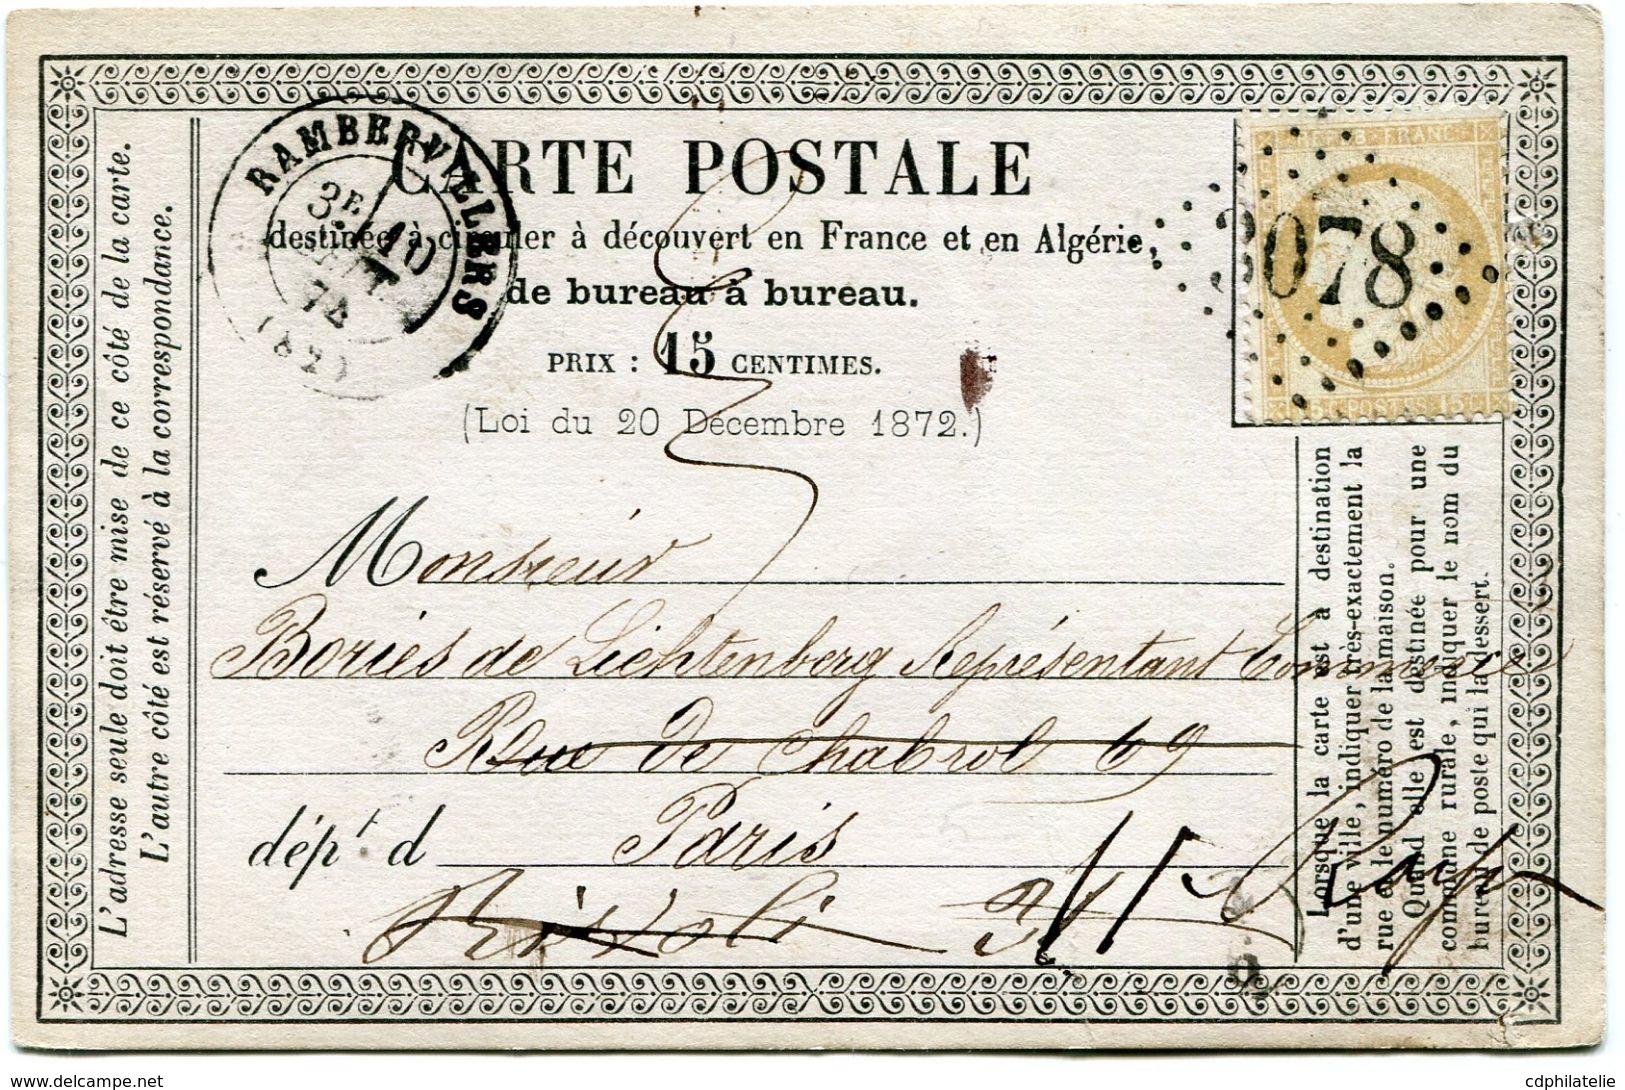 CARTE POSTALE
destinée à circuler à découvert en France et en Algérie,
de bureau à bureau.
PRIX : 15 CENTIMES.
(Loi du 20 Décembre 1872.)
RAMBERVILLERS
3E
10
74
(82)
2078
POSTES
L'adresse seule doit être mise de ce côté de la carte.
L'autre côté est réservé à la correspondance.
Monsieur
Bories de Lichtenberg Représentant Commerce
Rue de Chabrol 69
dépt d Paris
Rivoli
Lorsque la carte est à destination
d'une ville, indiquer très-exactement la
rue ou le numéro de la maison.
Quand elle est destinée pour une
commune rurale, indiquer le nom du
bureau de poste qui la dessert.
www.delcampe.net
cdphilatelie